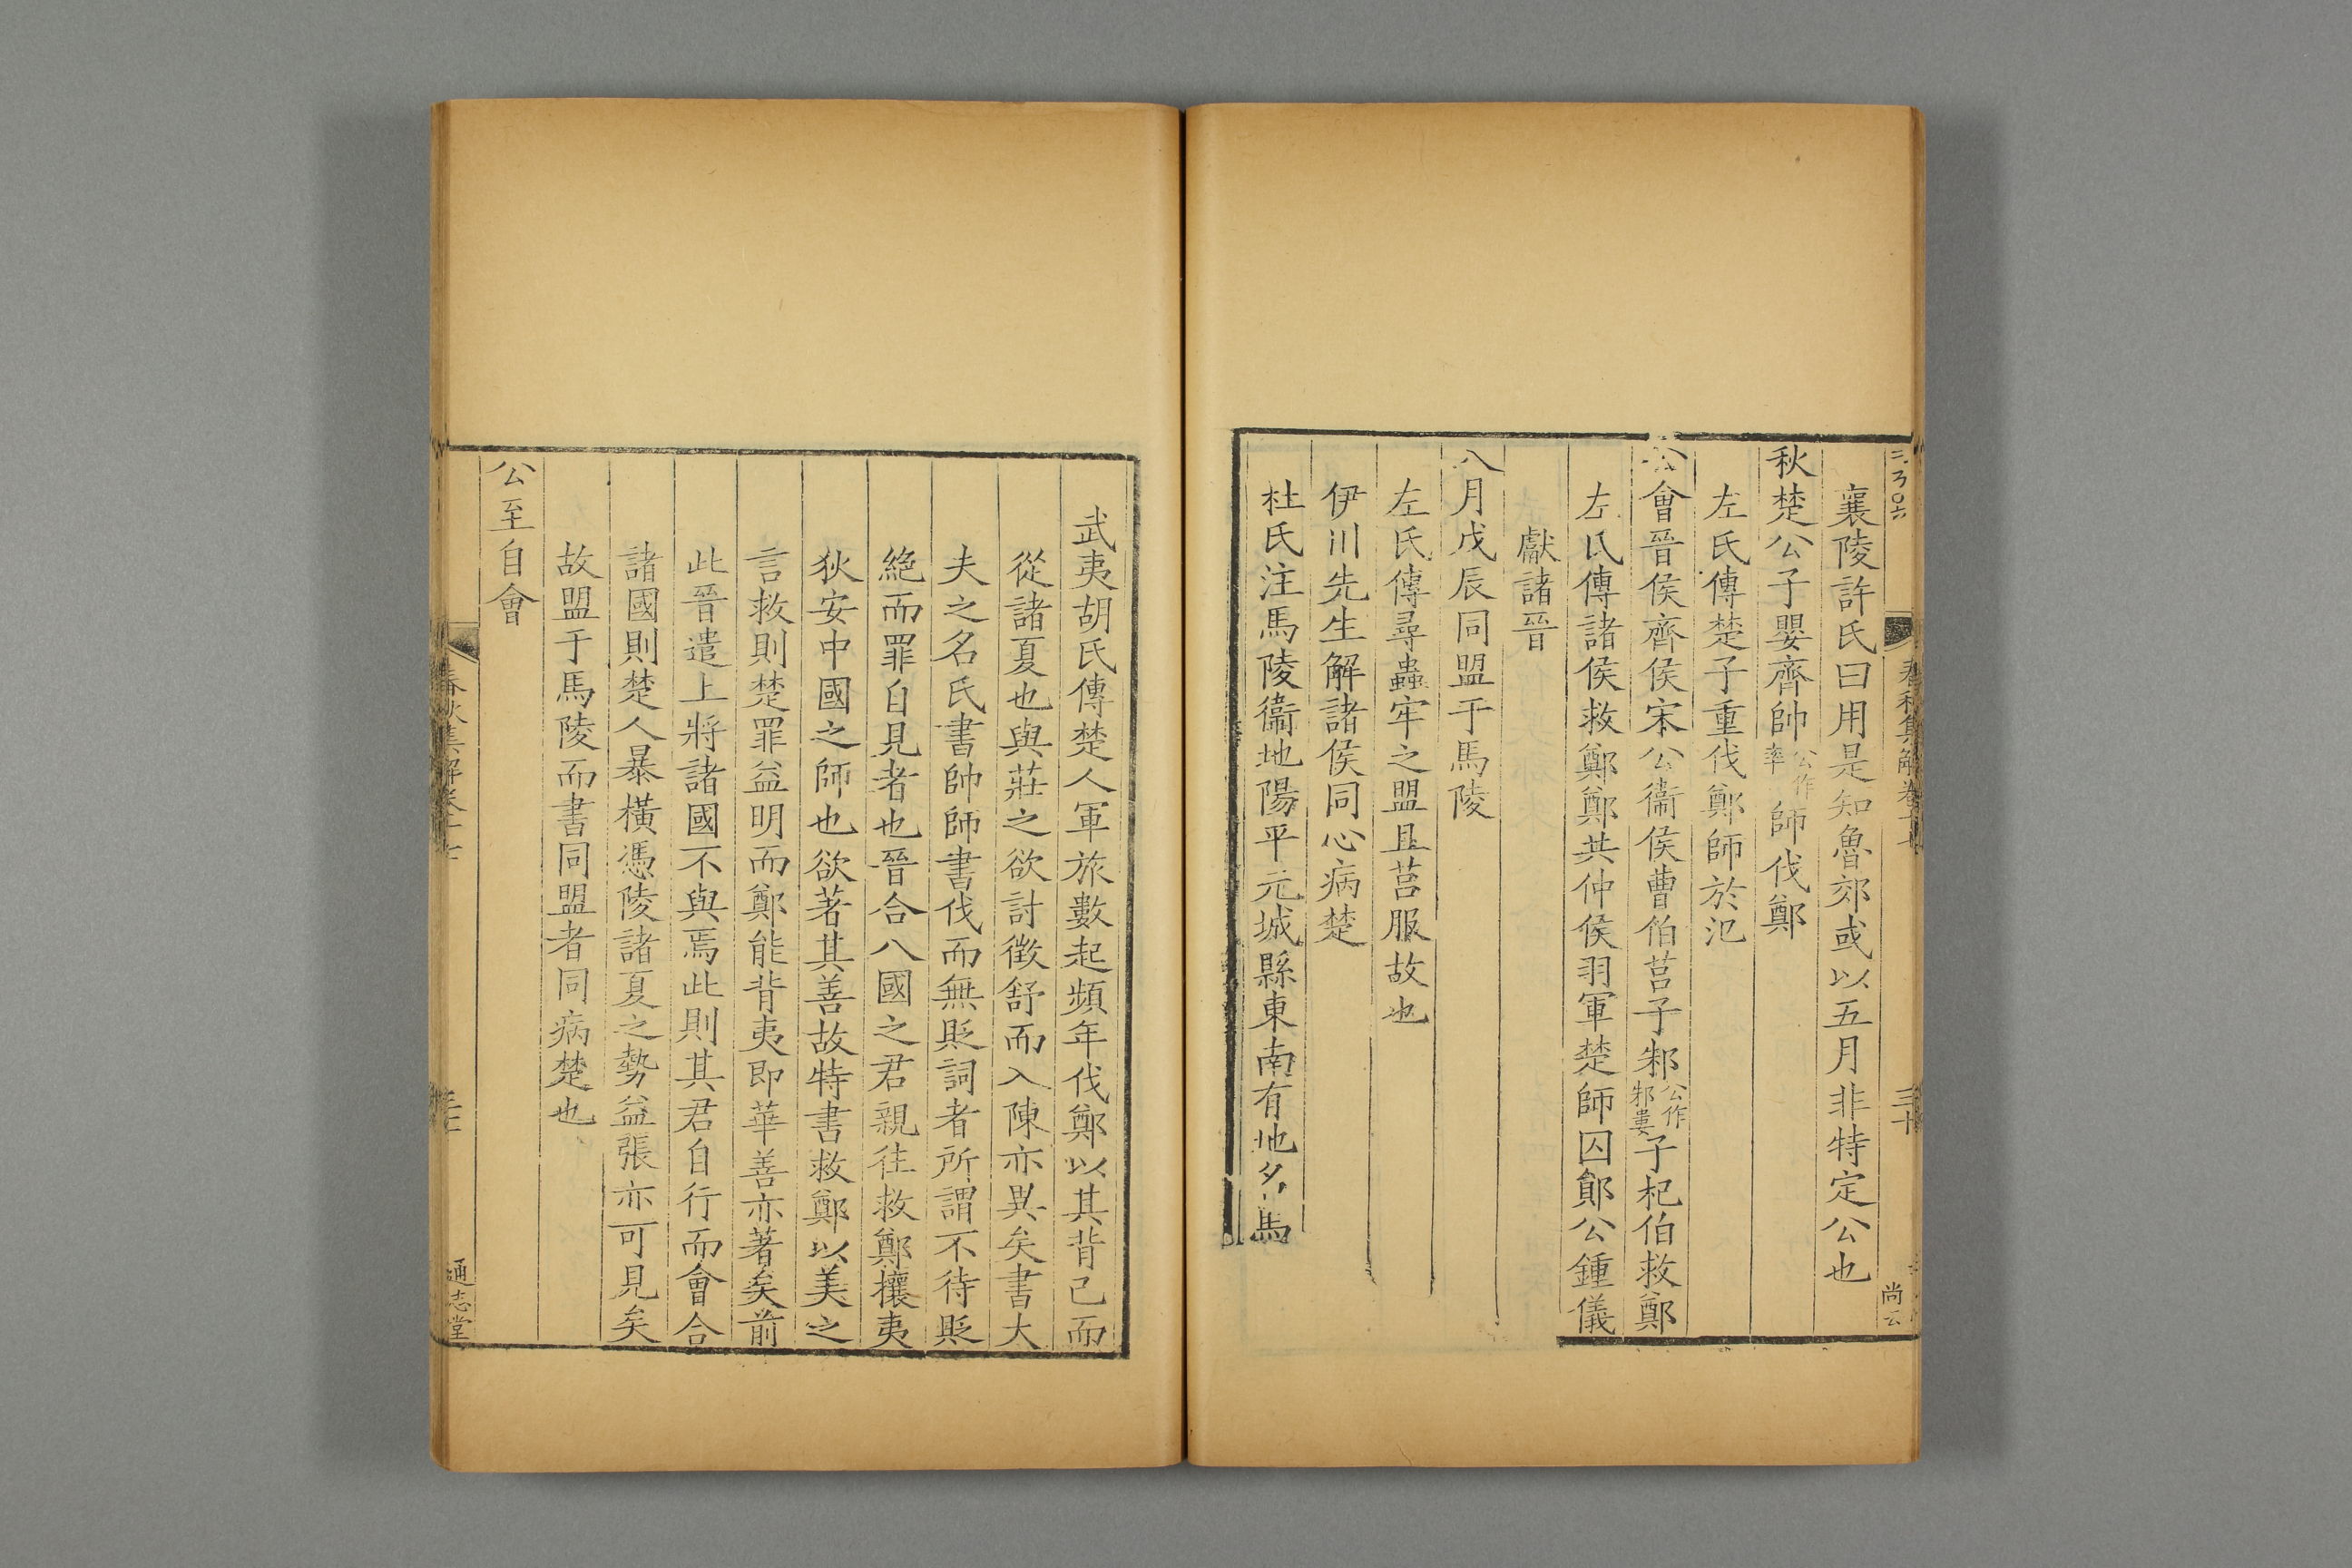 春秋集解卷十七
三十
尚云
襄陵許氏曰用是知魯郊或以五月非特定公也
秋楚公子嬰齊帥公作率師伐鄭
左氏傳楚子重伐鄭師於氾
公會晉侯齊侯宋公衞侯曹伯莒子邾公作邾婁子杞伯救鄭
左氏傳諸侯救鄭鄭共仲侯羽軍楚師囚鄖公鍾儀
獻諸晉
八月戊辰同盟于馬陵
左氏傳尋蟲牢之盟且莒服故也
伊川先生解諸侯同心病楚
杜氏注馬陵衞地陽平元城縣東南有地名馬
武夷胡氏傳楚人軍旅數起頻年伐鄭以其背己而
從諸夏也與莊之欲討徵舒而入陳亦異矣書大
夫之名氏書帥師書伐而無貶詞者所謂不待貶
絕而罪自見者也晉合八國之君親往救鄭攘夷
狄安中國之師也欲著其善故特書救鄭以美之
言救則楚罪益明而鄭能背夷即華善亦著矣前
此晉遣上將諸國不與焉此則其君自行而會合
諸國則楚人暴橫憑陵諸夏之勢益張亦可見矣
故盟于馬陵而書同盟者同病楚也
公至自會
春秋集解卷十七
通志堂